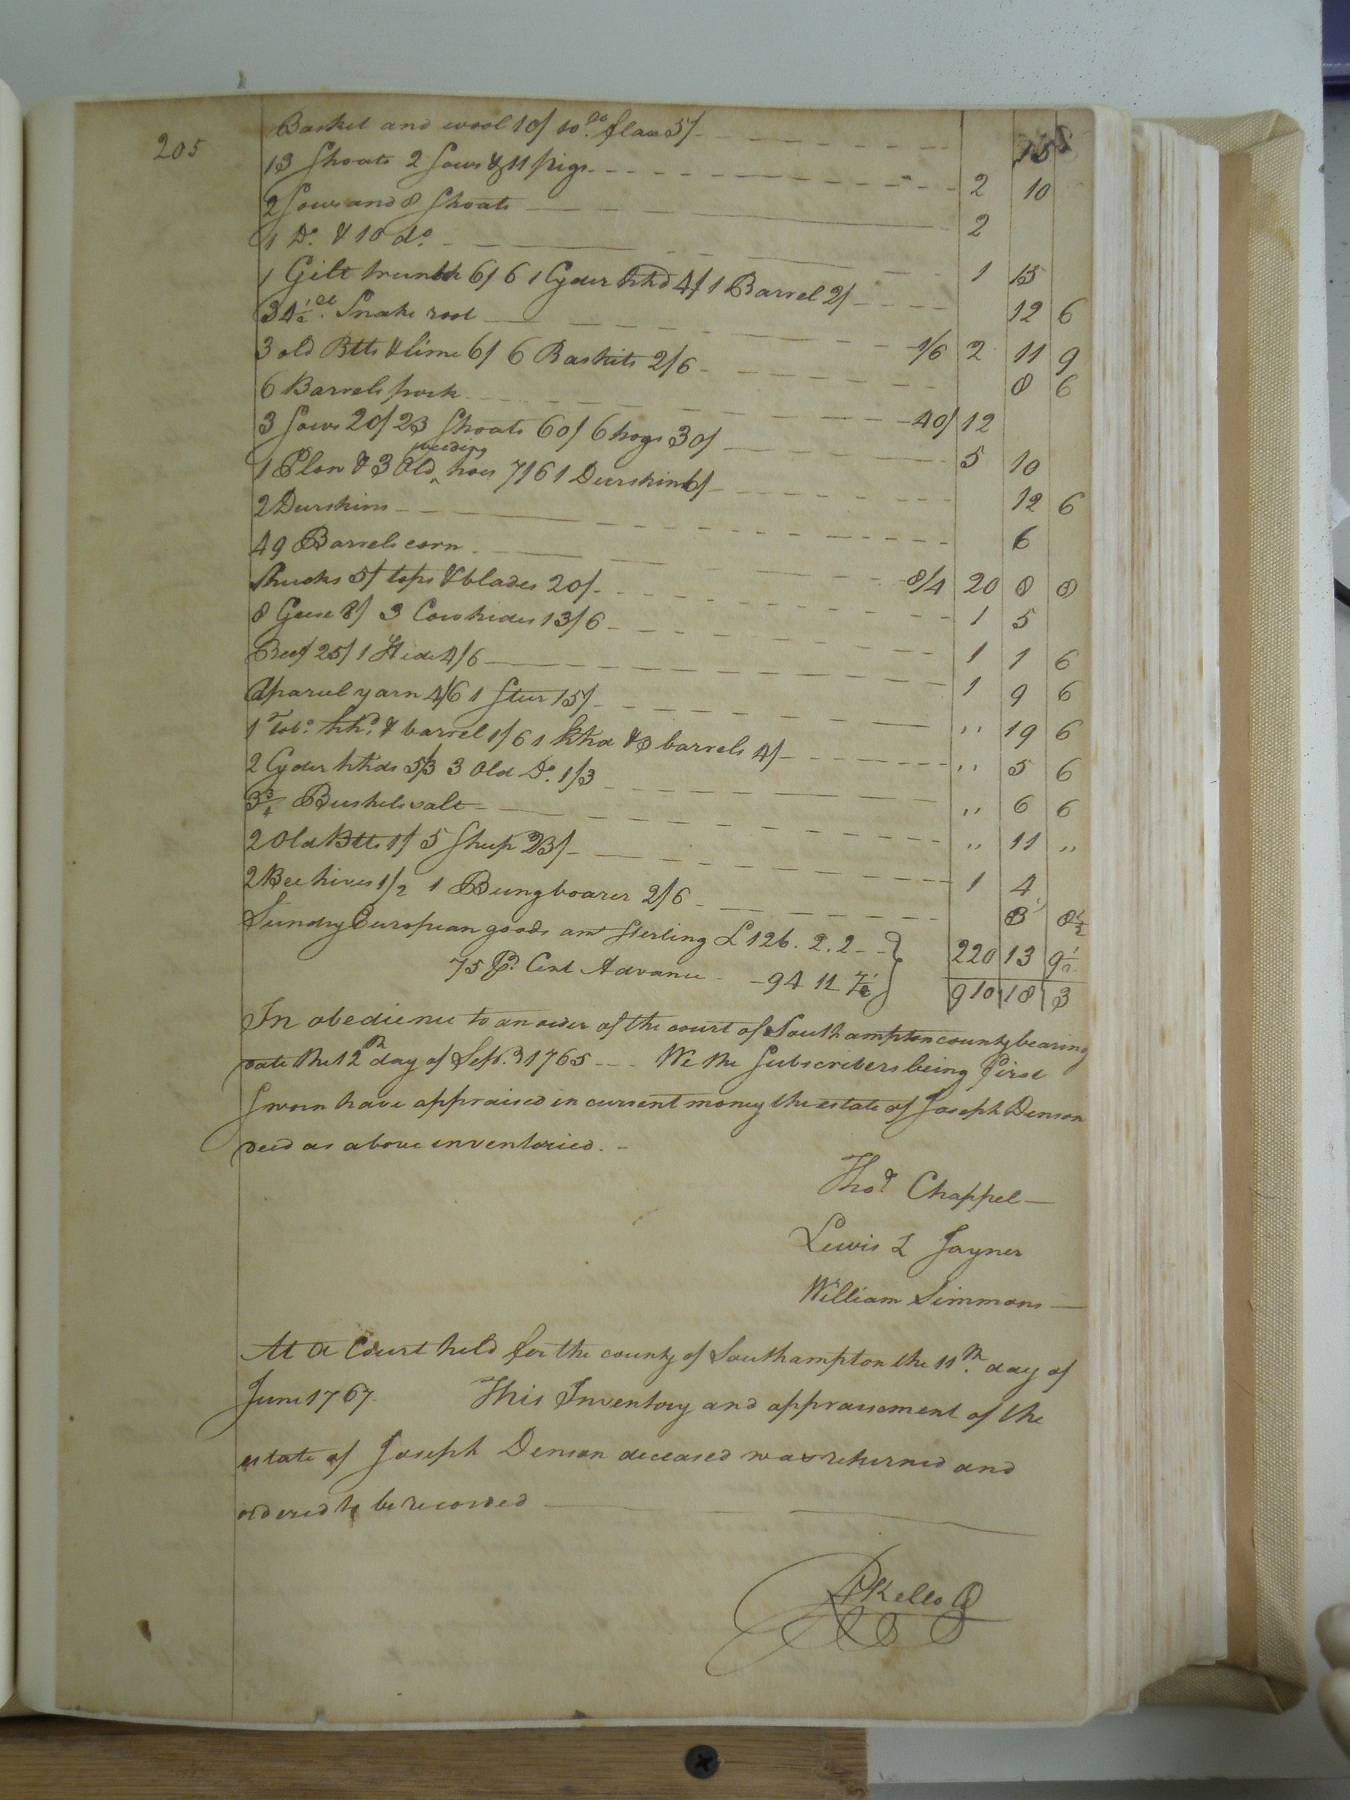 205
Basket and wool 10/ 10 Do flax 5/ 15
13 Shoats 2 Sows & 11 pigs 2 10
2 Sows and 8 Shoats 2
1 Do. & 10 do. 1 15
1 Gilt trunk 6/6 1 Cyder hhd 4/ 1 Barrel 2/ 12 6
34½ Snake root 1/6 2 11 9
3 old Btls & lime 6/ 6 Baskets 2/6 8 6
6 Barrels pork 40/ 12
3 Sows 20/ 23 Shoats 60/ 6 hogs 30/ 5 10
1 Plow & 3 Old weeding hoes 7/6 1 Deerskin 12 6
2 Deerskins 6
49 Barrels corn 8/4 20 8 8
Shucks 5/ tops & blades 20/ 1 5
8 Geese 8/ 3 Cowhides 13/6 1 1 6
Beef 25/ 1 Hide 4/6 1 9 6
A parcel yarn 4/6 1 Steer 15/ " 19 6
1 Tob. hhd. & barrel 1/6 1 hhd & 3 barrels 4/ " 5 6
2 Cyder hhds 5/3 3 Old Do. 1/3 " 6 6
3¾ Bushels salt " 11 "
2 Old Btls 1/ 5 Sheep 23/ 1 4
2 Bee hives 1/2 1 Bung boarer 2/6 3 8½
Sundry European goods amt Sterling £126. 2. 2
75 Pr. Cent Advance 94 11 7½ 220 13 9½
910 18 3
In obedience to an order of the court of Southampton county bearing
date the 12th day of Sept. 1765 We the Subscribers being first
Sworn have appraised in current money the estate of Joseph Denson
decd as above inventoried.
Thos Chappel
Lewis L Joyner
William Simmons
At a Court held for the county of Southampton the 11th day of
June 1767 This Inventory and appraisement of the
estate of Joseph Denson deceased was returned and
ordered to be recorded
R Kello